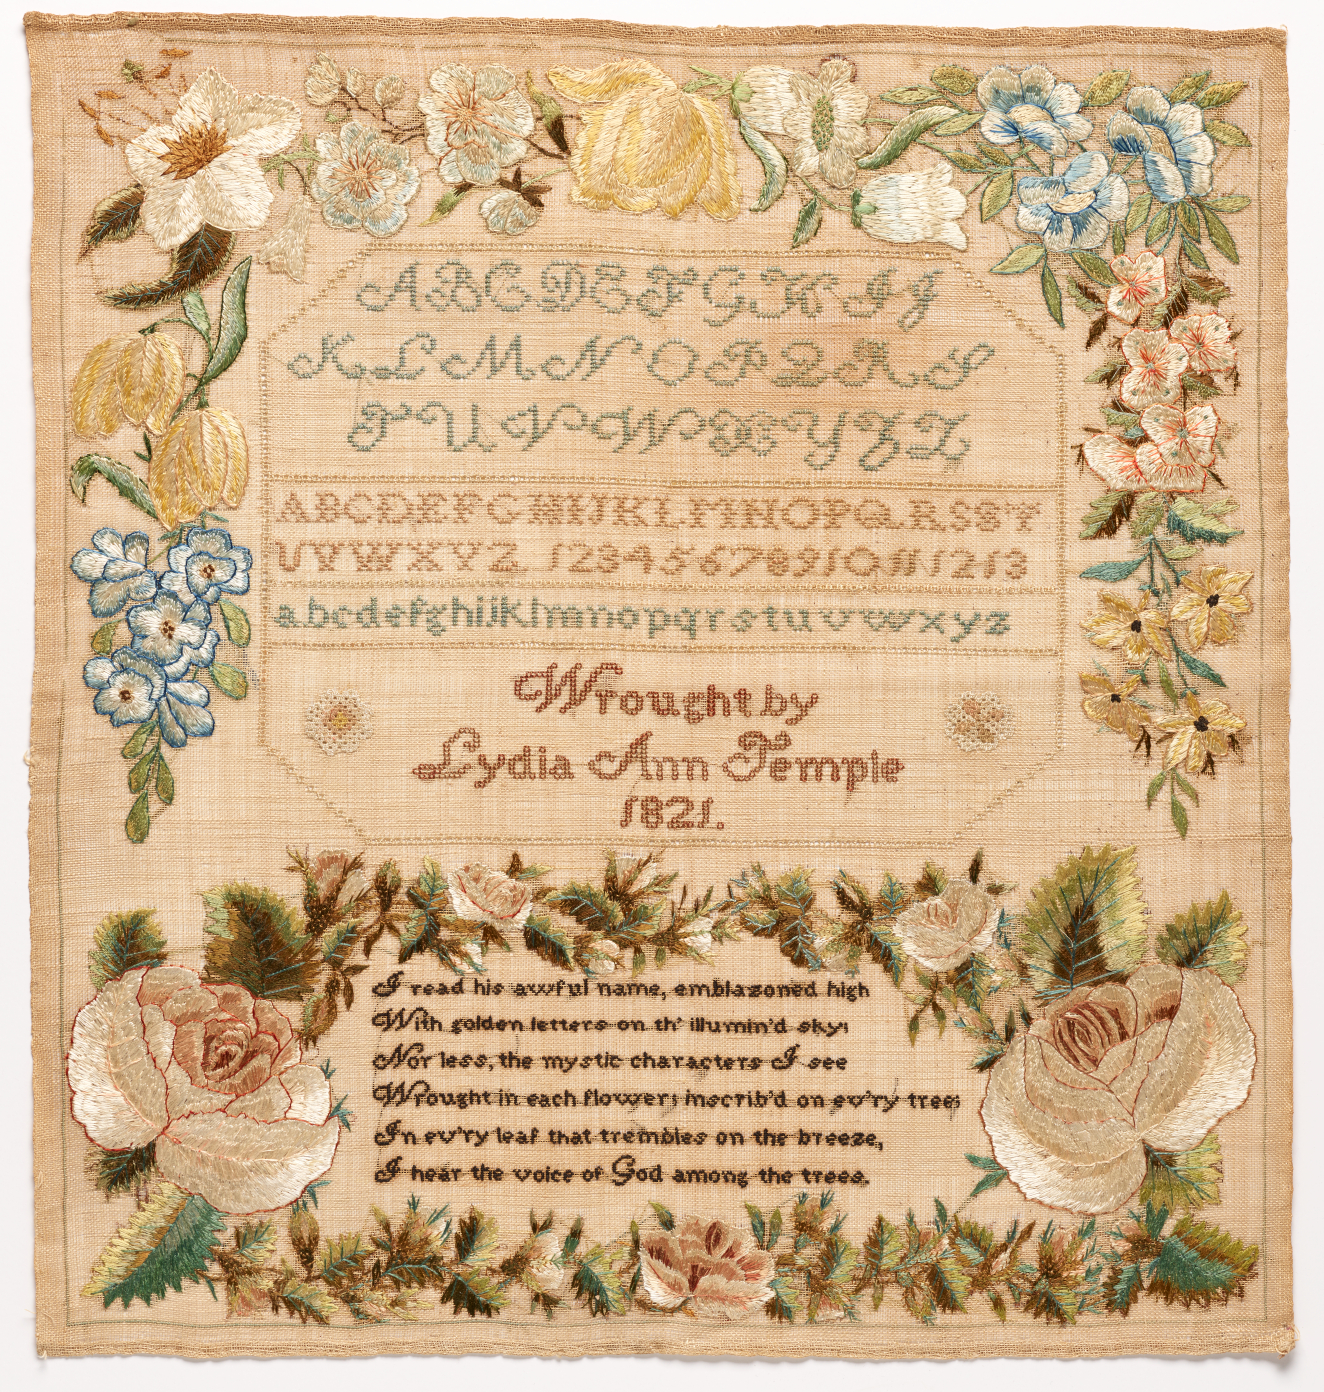 ABCDEFGHIJ
KLMNOPQRS
TUVWXYZZ
ABCDEFGHIJKLMNOPQRSST
UVWXYZ 12345678910111213
abcdefghijklmnopqrstuvwxyz
Wrought by
Lydia Ann Temple
1821.
I read his awful name, emblazoned high
With golden letters on th' illumin'd sky;
Nor less, the mystic characters I see
Wrought in each flower; inscrib'd on ev'ry tree;
In ev'ry leaf that trembles on the breeze,
I hear the voice of God among the trees.